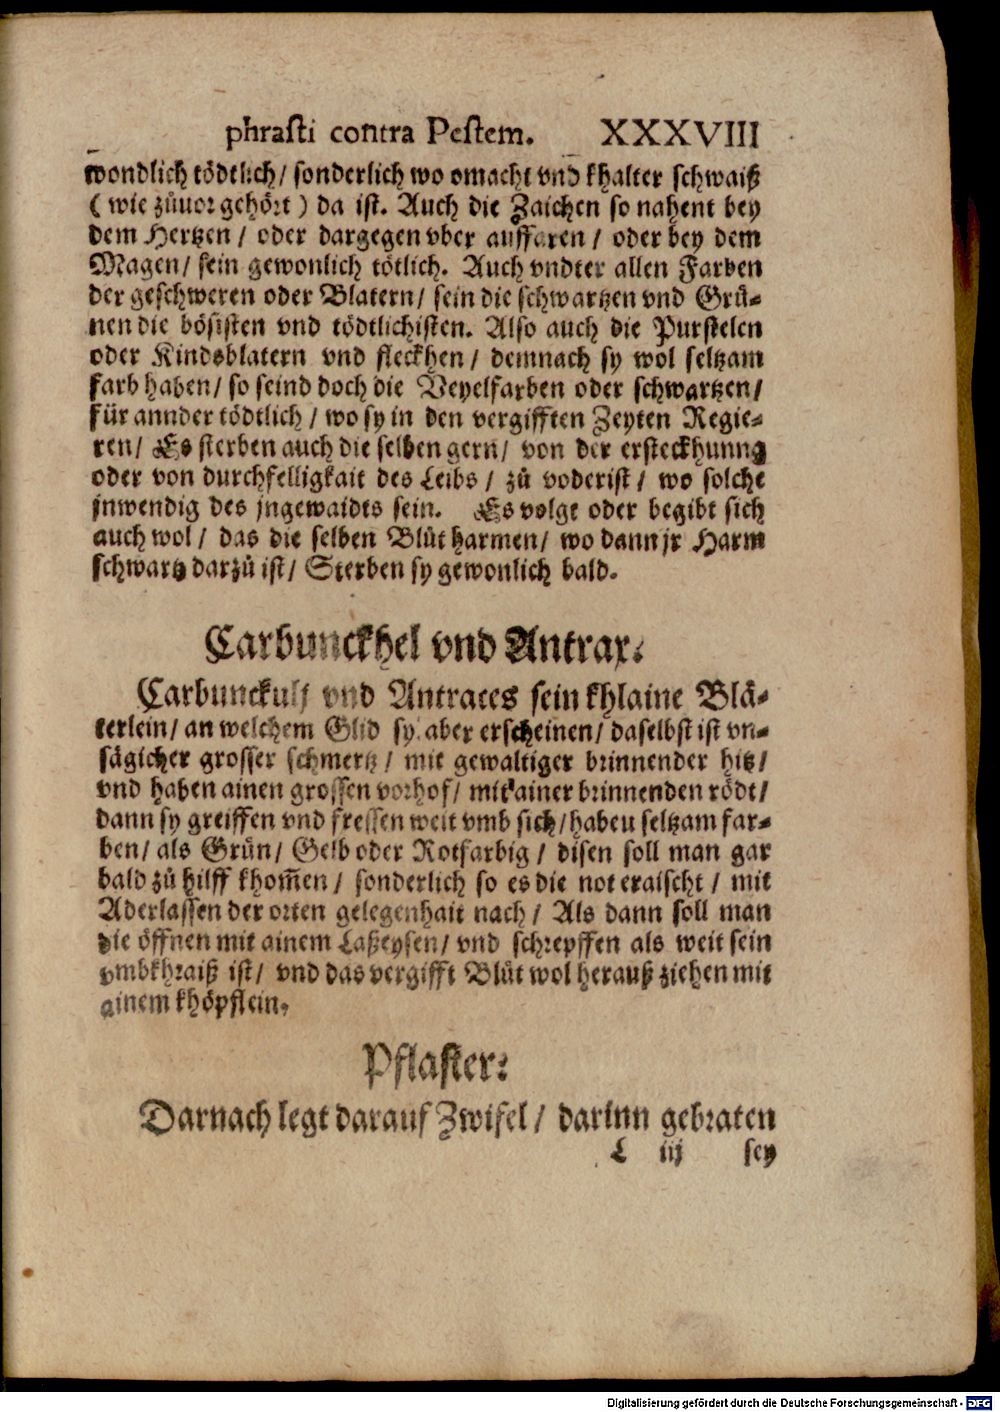 phrasti contra Pestem. XXXVIII
wondlich tödtlich / sonderlich wo omacht vnd khalter schwaiß
( wie zůuor gehört ) da ist. Auch die Zaichen so nahent bey
dem Hertzen / oder dargegen vber auffaren / oder bey dem
Magen / sein gewonlich tötlich. Auch vndter allen Farben
der geschweren oder Blatern / sein die schwartzen vnd Grü-
nen die bösisten vnd tödtlichisten. Also auch die Purstelen
oder Kindsblatern vnd fleckhen / demnach sy wol seltzam
farb haben / so seind doch die Veyelfarben oder schwartzen /
für annder tödtlich / wo sy in den vergifften Zeyten Regie-
ren / Es sterben auch die selben gern / von der ersteckhunng
oder von durchfelligkait des Leibs / zů voderist / wo solche
jnwendig des jngewaidts sein. Es volge oder begibt sich
auch wol / das die selben Blůt harmen / wo dann jr Harm
schwartz darzů ist / Sterben sy gewonlich bald.
Carbunckhel vnd Antrax.
Carbunckuls vnd Antraces sein khlaine Blä-
terlein / an welchem Glid sy aber erscheinen / daselbst ist vn-
sägicher grosser schmertz / mit gewaltiger brinnender hitz /
vnd haben ainen grossen vorhof / mit ainer brinnenden rödt /
dann sy greiffen vnd fressen weit vmb sich / habeu seltzam far-
ben / als Grün / Gelb oder Rotfarbig / disen soll man gar
bald zů hilff khom̄en / sonderlich so es die not eraischt / mit
Aderlassen der orten gelegenhait nach / Als dann soll man
die öffnen mit ainem Laßeysen / vnd schrepffen als weit sein
vmbkhraiß ist / vnd das vergifft Blůt wol herauß ziehen mit
ainem khöpflein.
Pflaster:
Darnach legt darauf Zwifel / darinn gebraten
L iij sey
Digitalisierung gefördert durch die Deutsche Forschungsgemeinschaft - DFG